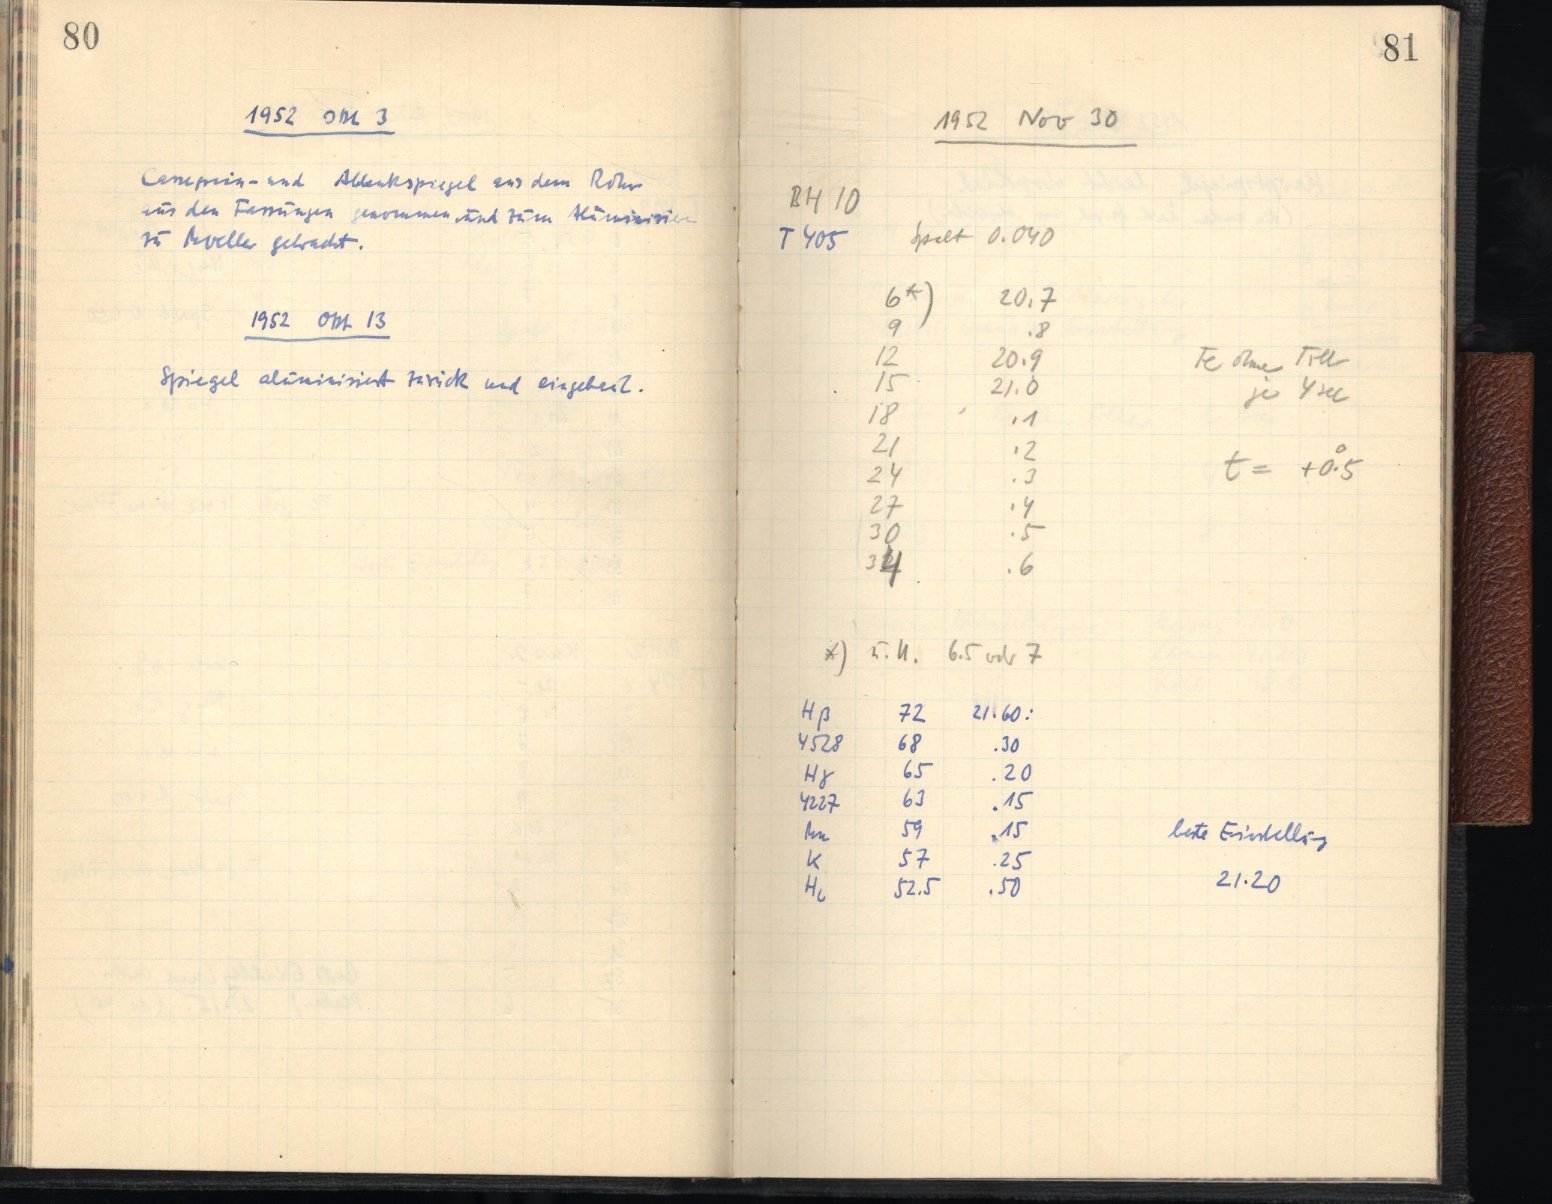 80
1952 Okt 3
Cassegrain- und Ablenkspiegel aus dem Rohr
aus den Fassungen genommen und zum Aluminisieren
zu Moeller gebracht.
1952 Okt 13
Spiegel aluminisiert zurück und eingebaut.
81
1952 Nov 30
BH 10
T 405 Spalt 0.040
6*) 20.7
9 .8
12 20.9 Fe ohne Filter
15 21.0 je 4 sec
18 .1
21 .2
24 .3 t = +0°.5
27 .4
30 .5
34 .6
*) u. U. 6.5 oder 7
Hβ 72 21.60:
4528 68 .30
Hγ 65 .20
4227 63 .15
59 .15 beste Einstellung
K 57 .25
52.5 .50 21.20